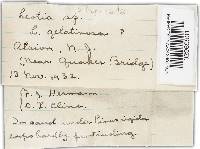 Leotia sp.
L. gelatinosa ?
Atsion, N. J.
(Near Quaker Bridge)
13 Nov. 1932.
F. J. Hermann
O. P. Cline
In sand under Pinus rigida
caps hardly protruding.